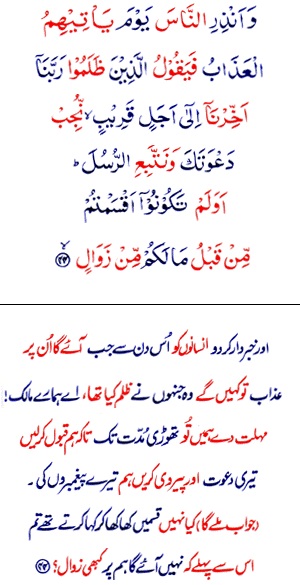 وَاَنْذِرِ النَّاسَ يَوْمَ يَاْتِيْهِمُ
الْعَذَابُ فَيَقُوْلُ الَّذِيْنَ ظَلَمُوْا رَبَّنَاۤ
اَخِّرْنَاۤ اِلٰۤى اَجَلٍ قَرِيْبٍ ۙ نُّجِبْ
دَعْوَتَكَ وَنَتَّبِعِ الرُّسُلَ ؕ
اَوَلَمْ تَكُوْنُوْۤا اَقْسَمْتُمْ
مِّنْ قَبْلُ مَا لَكُمْ مِّنْ زَوَالٍ ۙ﴿۴۴﴾
اور خبردار کردو انسانوں کو اُس دن سے جب آئے گا اُن پر
عذاب تو کہیں گے وہ جنہوں نے ظلم کیا تھا، اے ہمارے مالک!
مہلت دے ہمیں تُو تھوڑی مُدّت تک تاکہ ہم قبول کرلیں
تیری دعوت اور پیروی کریں ہم تیرے پیغمبروں کی ۔
(جواب ملے گا) کیا نہیں قسمیں کھا کھا کر کہا کرتے تھے تم
اس سے پہلے کہ نہیں آئے گا ہم پر کبھی زوال؟ ﴿۴۴﴾